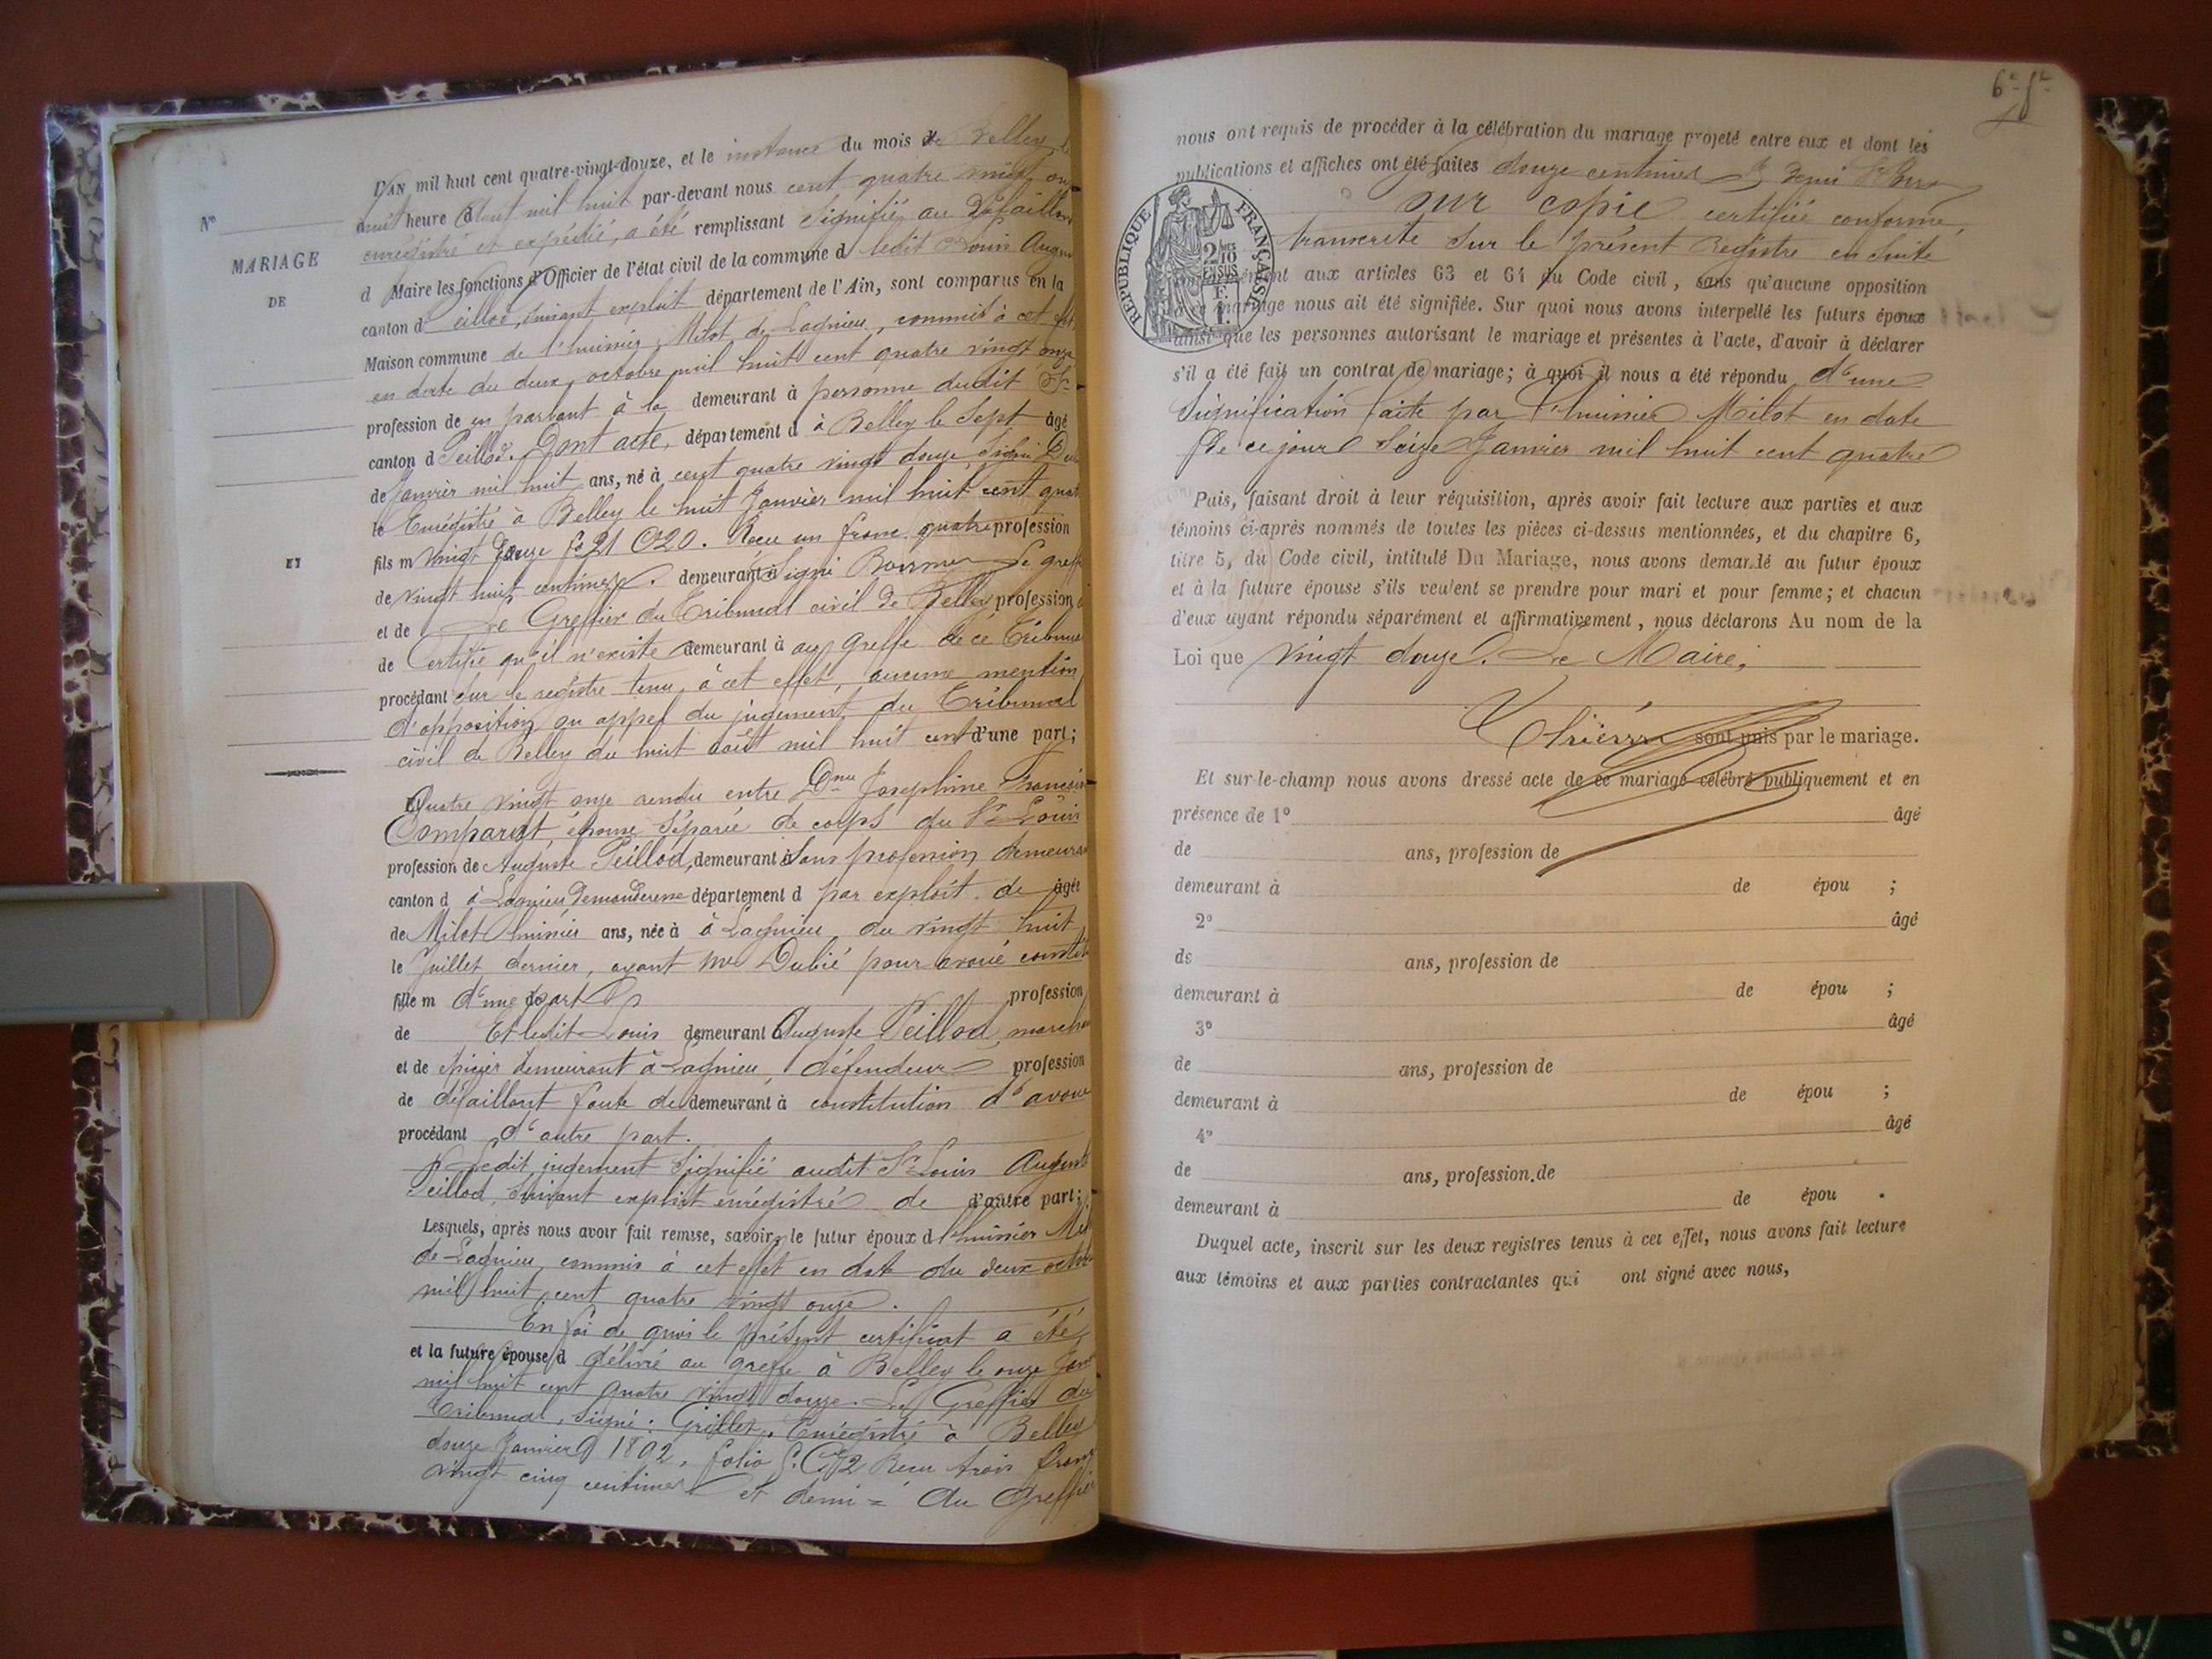 L'AN mil huit cent quatre-vingt-douze, et le instance du mois de Belley le
N° huit heure d août mil huit par-devant nous cent quatre vingt on
enrégistré et expédié, a été remplissant Signifié au Défaillant
MARIAGE
d Maire les fonctions d'Officier de l'état civil de la commune d ledit Louis Augus
DE
canton d eillod, suivant exploit département de l'Ain, sont comparus en la
Maison commune de l'huissier Milot de Lagnieu, commis à cet
en date du deux octobre mil huit cent quatre vingt onze
profession de en parlant à la demeurant à personne dudit Sr
canton d Peillod. Dont acte, département d à Belley le Sept âgé
de Janvier mil huit ans, né à cent quatre vingt douze, Signé
le Enrégistré à Belley le huit Janvier mil huit cent quat
ET
fils m vingt douze fo 21 C 20. Reçu un franc quatre profession
de vingt huit centimes. demeurant à Signé
et de Le Greffier du Tribunal civil de Belley profession
de Certifie qu'il n'existe demeurant à au greffe de ce Tribuna
procédant sur le registre tenu à cet effet, aucune mention
d'opposition ou appel du jugement du Tribunal
civil de Belley du huit août mil huit cent d'une part;
Et Quatre vingt onze rendu entre Dme Josephine Francois
Comparat, épouse Séparée de corps du Sr Louis
profession de Auguste Peillod, demeurant à Sans profession demeura
canton d à Lagnieu Demanderesse département d par exploit de âgée
de Milot huissier ans, née à à Lagnieu du vingt huit
le Juillet dernier, ayant Me Dubié pour avoué constit
fille m d'une part profession
de Et ledit Louis demeurant à Auguste Peillod, marcha
et de épicier demeurant à Lagnieu, défendeur profession
de défaillant faute de demeurant à constitution d'avoué
procédant d'autre part.
Ledit jugement Signifié audit Sr Louis August
Peillod, Suivant exploit enrégistré de d'autre part;
Lesquels, après nous avoir fait remise, savoir: le futur époux d l'huissier Mil
de Lagnieu, commis à cet effet en date du deux octob
mil huit cent quatre vingt onze.
En foi de quoi le présent certificat a été
et la future épouse d délivré au greffe à Belley le onze Janv
mil huit cent quatre vingt douze. Le Greffier du
Tribunal, Signé: Grillet, Enrégistré à Belley
douze Janvier 1892, folio C 2 Reçu trois francs
vingt cinq centimes et demi = Au Greffier
6e ft
nous ont requis de procéder à la célébration du mariage projeté entre eux et dont les
publications et affiches ont été faites douze centimes
REPUBLIQUE FRANÇAISE
2/10 EN SUS
Pour copie certifiée conforme,
transcrite Sur le présent Registre en Suite
conformément aux articles 63 et 64 du Code civil, sans qu'aucune opposition
mariage nous ait été signifiée. Sur quoi nous avons interpellé les futurs époux
ainsi que les personnes autorisant le mariage et présentes à l'acte, d'avoir à déclarer
s'il a été fait un contrat de mariage; à quoi il nous a été répondu d'une
Signification faite par l'huissier Milot en date
de ce jour Seize Janvier mil huit cent quatre
Puis, faisant droit à leur réquisition, après avoir fait lecture aux parties et aux
témoins ci-après nommés de toutes les pièces ci-dessus mentionnées, et du chapitre 6,
titre 5, du Code civil, intitulé Du Mariage, nous avons demandé au futur époux
et à la future épouse s'ils veulent se prendre pour mari et pour femme; et chacun
d'eux ayant répondu séparément et affirmativement, nous déclarons Au nom de la
Loi que vingt douze. Le Maire,
sont unis par le mariage.
Et sur-le-champ nous avons dressé acte de ce mariage célébré publiquement et en
présence de 1° âgé
de ans, profession de
demeurant à de épou ;
2° âgé
de ans, profession de
demeurant à de épou ;
3° âgé
de ans, profession de
demeurant à de épou ;
4° âgé
de ans, profession de
demeurant à de épou .
Duquel acte, inscrit sur les deux registres tenus à cet effet, nous avons fait lecture
aux témoins et aux parties contractantes qui ont signé avec nous,